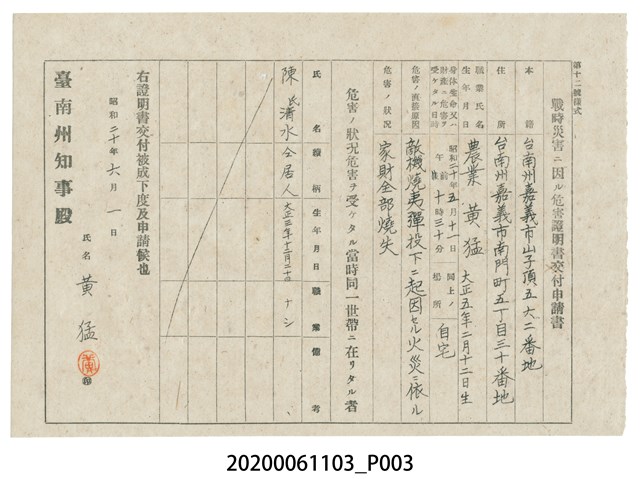 第十二號樣式
戰時災害ニ因ル危害證明書交付申請書
本籍 台南州嘉義市山子頂五六二番地
住所 台南州嘉義市南門町五丁目三十番地
職業氏名 農業 黃猛
生年月日 大正五年二月十二日生
身体生命又ハ財產ニ危害ヲ受ケタル日時 昭和二十年五月十一日 午前十時三十分
同上ノ場所 自宅
危害ノ直接原因 敵機燒夷彈投下ニ起因セル火災ニ依ル
危害ノ狀況 家財全部燒失
危害ノ狀況危害ヲ受ケタル當時同一世帶ニ在リタル者
氏名 續柄 生年月日 職業 備考
陳氏清水 仝居人 大正三年十二月二十四 ナシ
右證明書交付被成下度及申請候也
昭和二十年六月一日
氏名 黃猛 ㊞
臺南州知事殿
20200061103_P003